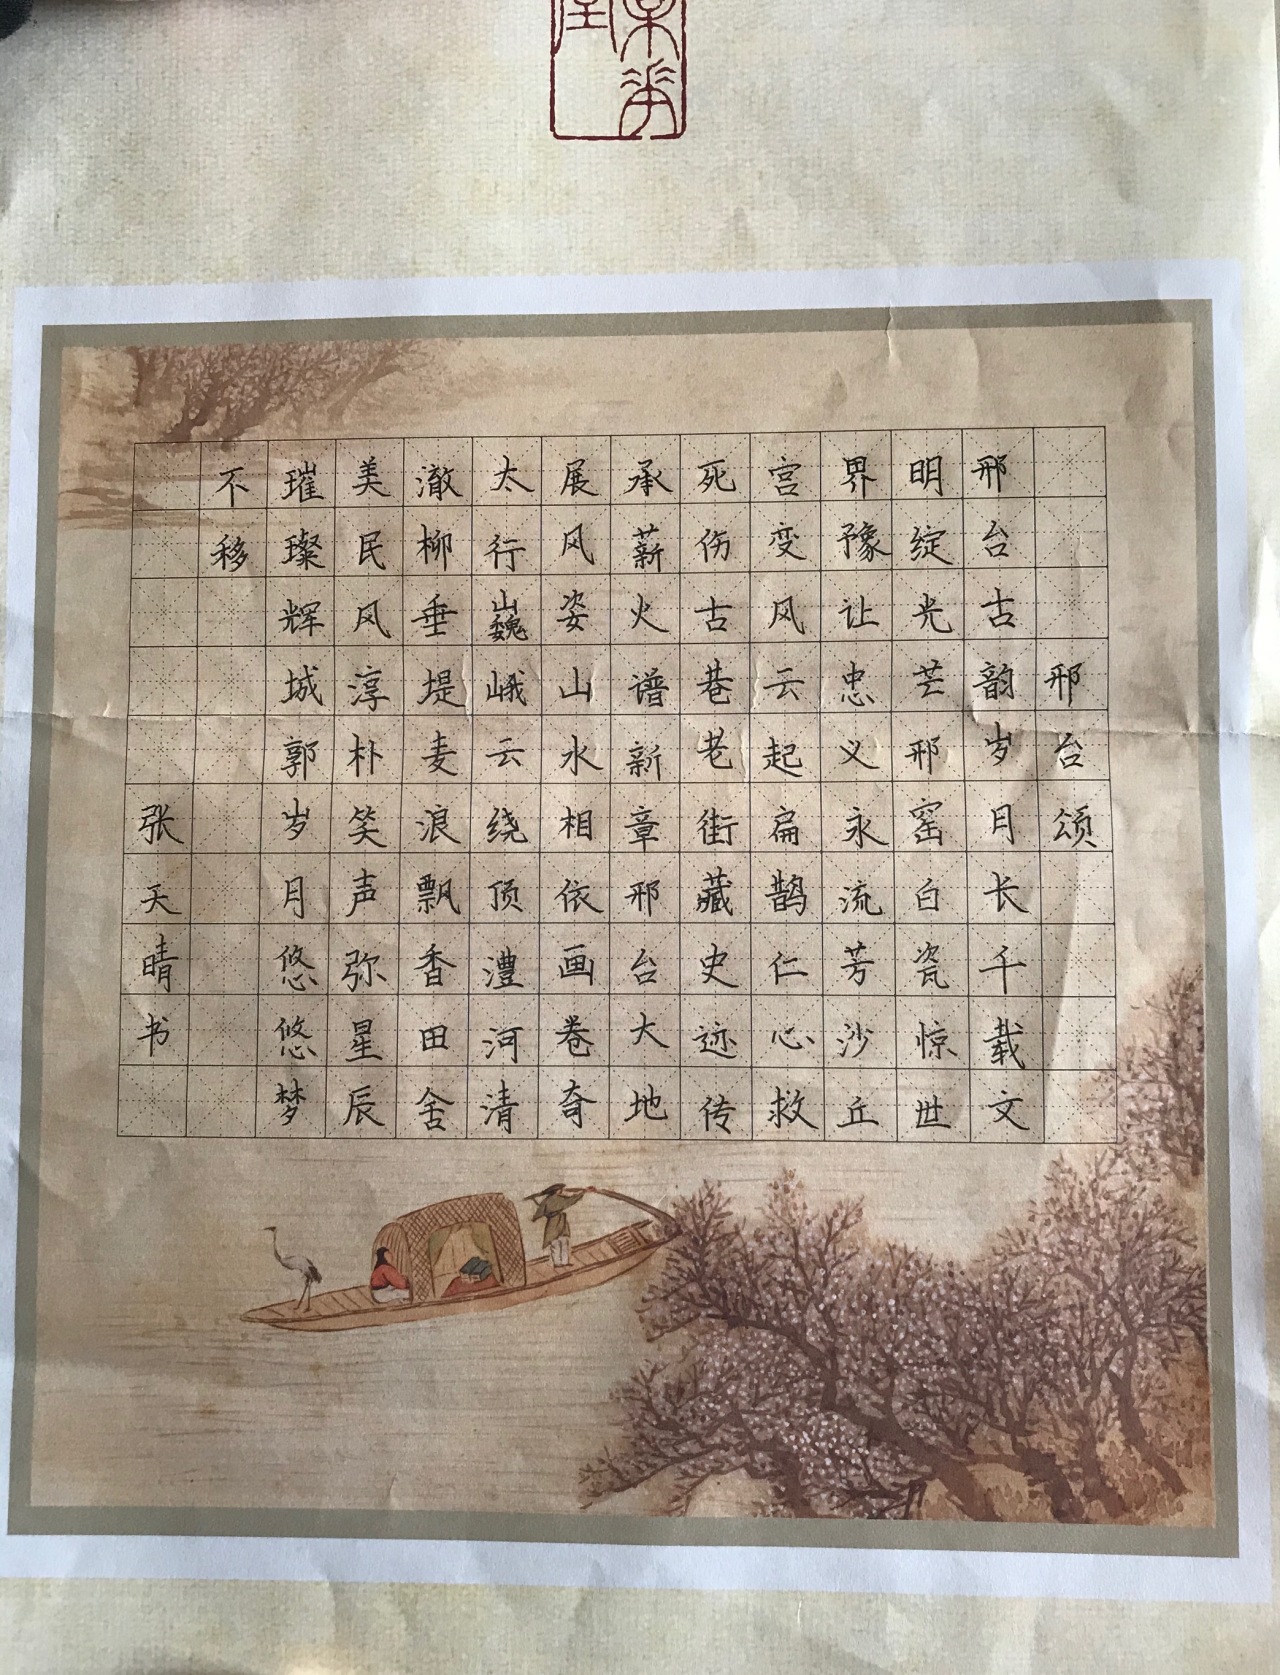 邢台颂
邢台古韵岁月长千载文
明绽光芒邢窑白瓷惊世
界豫让忠义永流芳沙丘
宫变风云起扁鹊仁心救
死伤古巷老街藏史迹传
承薪火谱新章邢台大地
展风姿山水相依画卷奇
太行巍峨云绕顶澧河清
澈柳垂堤麦浪飘香田舍
美民风淳朴笑声弥星辰
璀璨辉城郭岁月悠悠梦
不移
张天晴书